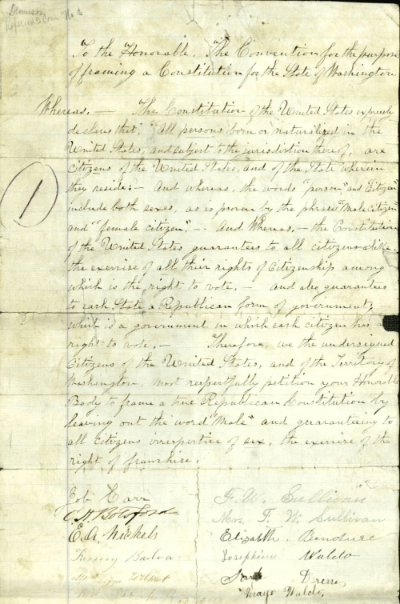 To the Honorable, The Convention for the purpose
of framing a Constitution for the State of Washington
Whereas, — The Constitution of the United States expressly
declares that, "All persons born or naturalized in the
United States, and subject to the jurisdiction thereof, are
Citizens of the United States, and of the State wherein
they reside:- And whereas, the words "person" and "Citizen"
include both sexes, as is proven by the phrases "Male citizen"
and "female citizen" - And Whereas, - the Constitution
of the United States guarantees to all citizens alike
the exercise of all their rights of Citizenship among
which is the right to vote, - and also guarantees
to each State a Republican form of government;
which is a government in which each citizen has
right to vote, - Therefore, we the undersigned
Citizens of the United States, and of the Territory of
Washington, most respectfully petition your Honorable
Body to frame a true Republican Constitution by
leaving out the word "Male" and guaranteeing to
all Citizens irrespective of sex, the exercise of the
right of franchise.
1
Eol Carr
E. A. Nickels
Fanny
G. W. Sullivan
Mrs. G. W. Sullivan
Elizabeth
Josephine Waldo
Mayo Waldo